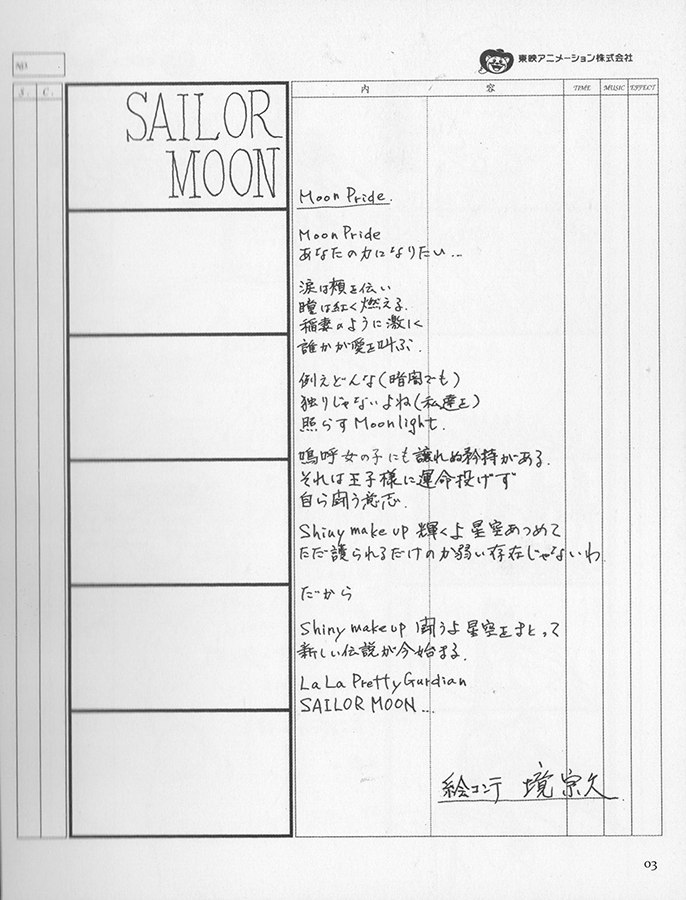 東映アニメーション株式会社
NO.
S. C. 内 容 TIME MUSIC EFFECT
SAILOR
MOON
Moon Pride.
Moon Pride
あなたの力になりたい...
涙は頬を伝い
瞳は紅く燃える.
稲妻のように激しく
誰かが愛を叫ぶ.
例えどんな(暗闇でも)
独りじゃないよね(私達を)
照らす Moonlight.
嗚呼 女の子にも譲れぬ矜持がある.
それは王子様に運命投げず
自ら闘う意志.
Shiny make up 輝くよ 星空あつめて
ただ護られるだけのか弱い存在じゃないわ
だから
Shiny make up 闘うよ 星空をまとって
新しい伝説が今始まる.
La La Pretty Gurdian
SAILOR MOON...
絵コンテ 境 宗久
03